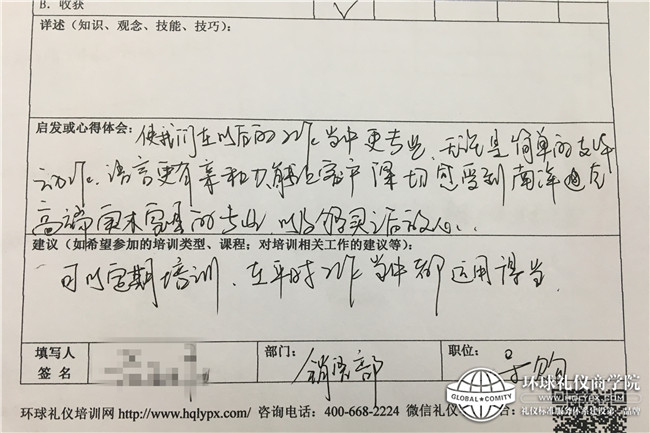 B. 收获 ✓
详述（知识、观念、技能、技巧）：
启发或心得体会： 使我们在以后的工作当中更专业、无论是简单的支体
动作、语言更有亲和力能让客户深切感受到南洋迪克
高端实木家具的专业，以及购买之后放心...
建议（如希望参加的培训类型、课程；对培训相关工作的建议等）：
可以定期培训、在平时工作当中都运用得当
填写人
签名
部门： 销售部
职位：
环球礼仪培训网http://www.hqlypx.com/ 咨询电话：400-668-2224 微信礼仪
环球礼仪商学院
GLOBAL COMITY